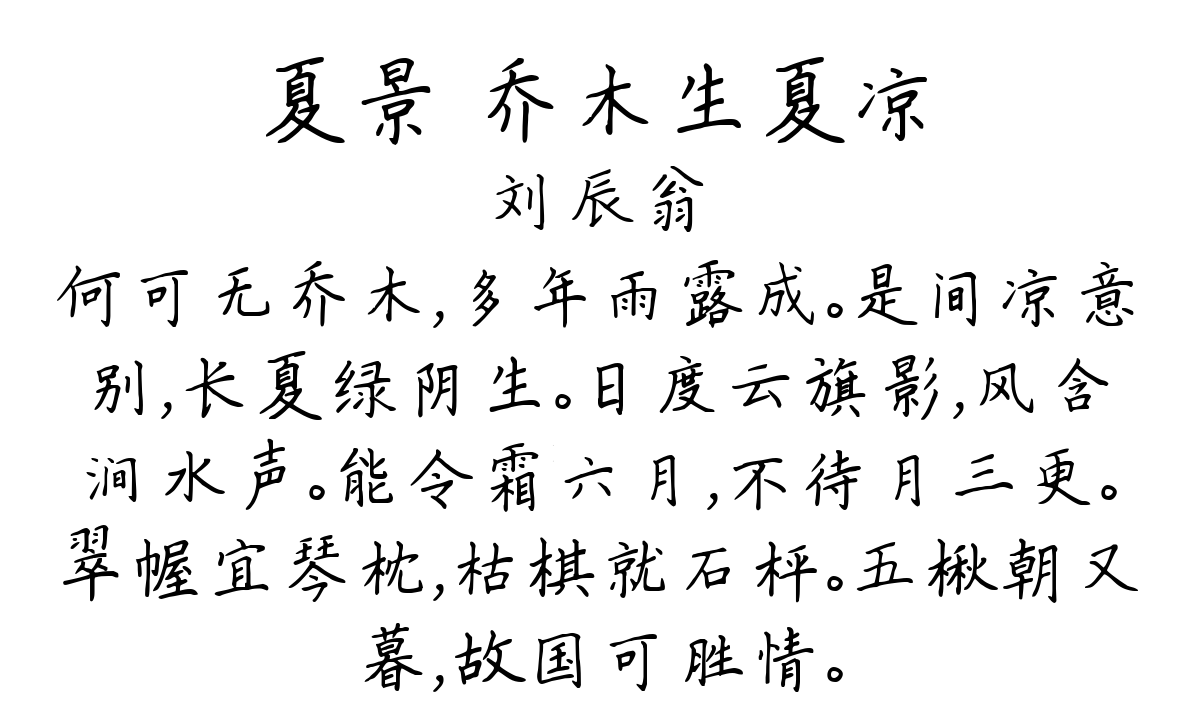 夏景 乔木生夏凉
刘辰翁
何可无乔木,多年雨露成。是间凉意
别,长夏绿阴生。日度云旗影,风含
涧水声。能令霜六月,不待月三更。
翠幄宜琴枕,枯棋就石枰。五楸朝又
暮,故国可胜情。